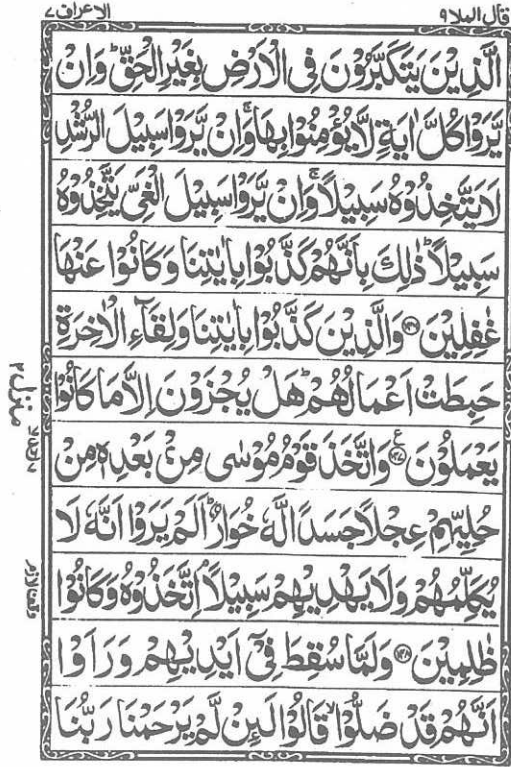 قال الملا ٩
الاعراف ٧
الَّذِيْنَ يَتَكَبَّرُوْنَ فِى الْاَرْضِ بِغَيْرِ الْحَقِّ ؕ وَاِنْ
يَّرَوْا كُلَّ اٰيَةٍ لَّا يُؤْمِنُوْا بِهَا ۚ وَاِنْ يَّرَوْا سَبِيْلَ الرُّشْدِ
لَا يَتَّخِذُوْهُ سَبِيْلًا ۚ وَاِنْ يَّرَوْا سَبِيْلَ الْغَىِّ يَتَّخِذُوْهُ
سَبِيْلًا ؕ ذٰلِكَ بِاَنَّهُمْ كَذَّبُوْا بِاٰيٰتِنَا وَكَانُوْا عَنْهَا
غٰفِلِيْنَ ۝ وَالَّذِيْنَ كَذَّبُوْا بِاٰيٰتِنَا وَلِقَآءِ الْاٰخِرَةِ
حَبِطَتْ اَعْمَالُهُمْ ؕ هَلْ يُجْزَوْنَ اِلَّا مَا كَانُوْا
يَعْمَلُوْنَ ۝ وَاتَّخَذَ قَوْمُ مُوْسٰى مِنْۢ بَعْدِهٖ مِنْ
حُلِيِّهِمْ عِجْلًا جَسَدًا لَّهٗ خُوَارٌ ؕ اَلَمْ يَرَوْا اَنَّهٗ لَا
يُكَلِّمُهُمْ وَلَا يَهْدِيْهِمْ سَبِيْلًا ۘ اِتَّخَذُوْهُ وَكَانُوْا
ظٰلِمِيْنَ ۝ وَلَمَّا سُقِطَ فِىْٓ اَيْدِيْهِمْ وَرَاَوْا
اَنَّهُمْ قَدْ ضَلُّوْا ۙ قَالُوْا لَىِٕنْ لَّمْ يَرْحَمْنَا رَبُّنَا
منزل ٢
وقف لازم